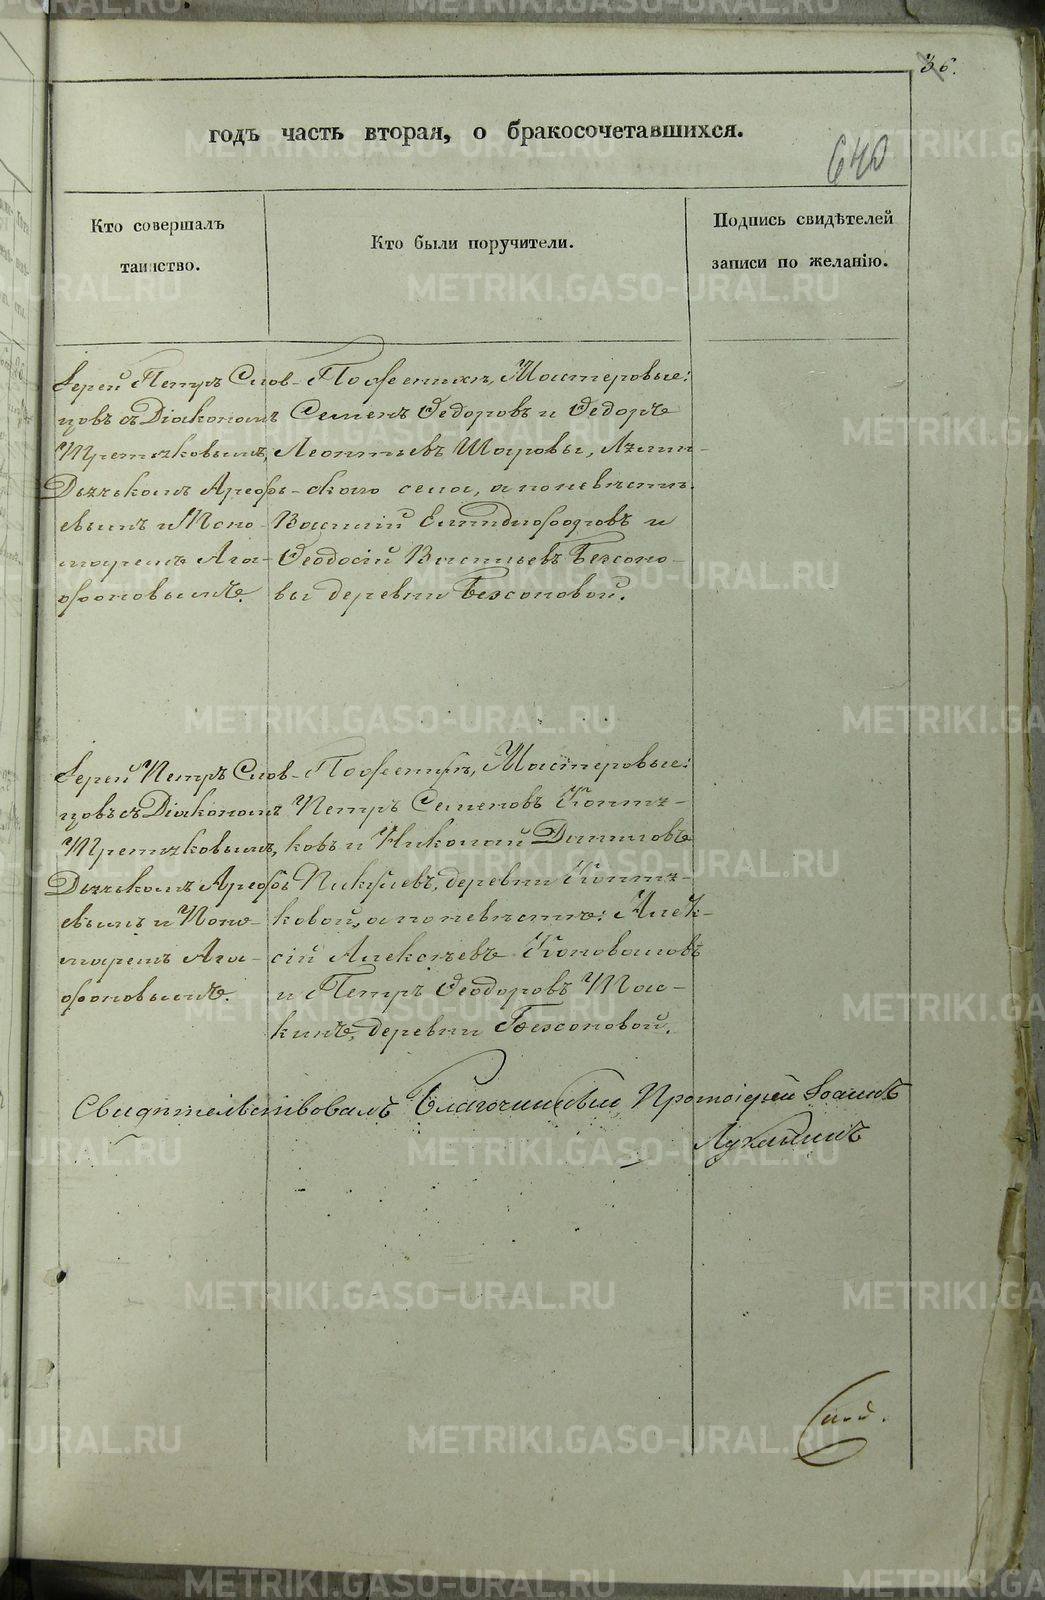 36.
годъ часть вторая, о бракосочетавшихся.
640
Кто совершалъ
таинство.
Кто были поручители.
Подпись свидѣтелей
записи по желанію.
Іерей Петръ Слов-
цовъ съ Діакономъ
Третьяковымъ,
Дьячкомъ Арефь-
евымъ и Поно-
маремъ Ага-
фоновымъ.
По женихѣ, Мастеровые:
Семенъ Ѳедоровъ и Ѳедоръ
Леонтьевъ Шаровы,
скаго села, а по невѣстѣ:
Василій и
Ѳеодосій Васильевъ Безсоно-
вы деревни Безсоновой.
Іерей Петръ Слов-
цовъ съ Діакономъ
Третьяковымъ,
Дьячкомъ Арефь-
евымъ и Поно-
маремъ Ага-
фоновымъ.
По женихѣ, Мастеровые:
Петръ Семеновъ Коптя-
ковъ и Николай Даниловъ
деревни Коптя-
ковой, а по невѣстѣ: Алек-
сій Алексѣевъ Коноваловъ
и Петръ Ѳеодоровъ
деревни Безсоновой.
Свидѣтельствовалъ Благочинный, Протоіерей Іоаннъ
Луканинъ
METRIKI.GASO-URAL.RU